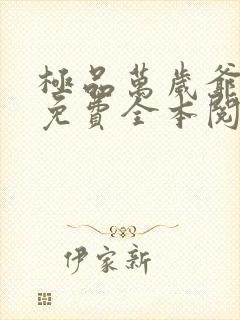 極品萬歲爺
免費全本閱
伊家新